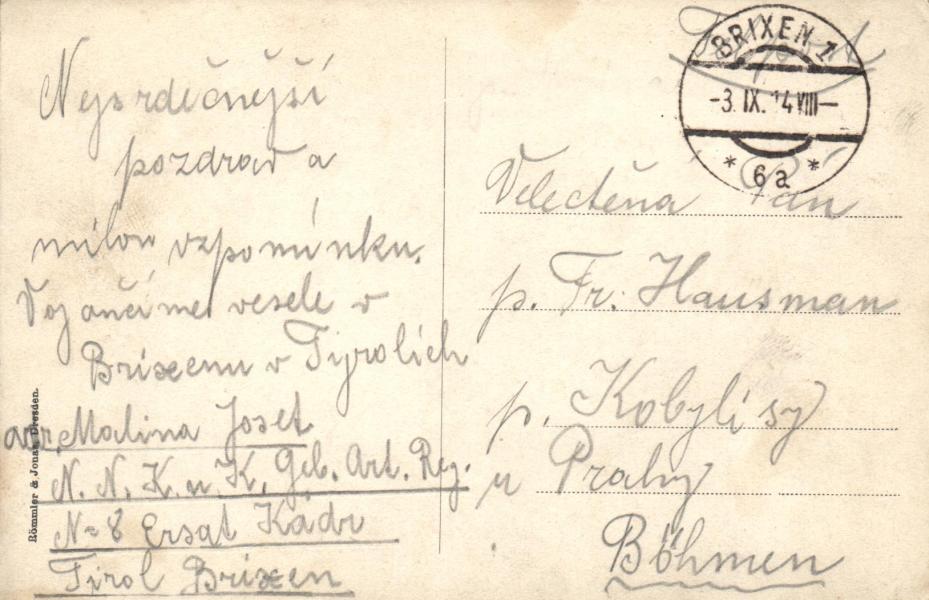 Nejsrdečnější
pozdrav a
milou vzpomínku.
Vojančíme vesele v
Brixenu v Tyrolích
Malina Josef
N. N. K. u K. Geb. Art. Reg.
N=8 Ersat Kadr
Tirol Brixen
Römmler & Jonas, Dresden.
BRIXEN 1
-3. IX. 14 VIII-
* 6a *
Velectěná Pán
p. Fr. Hausman
p. Kobylisy
u Prahy
Böhmen